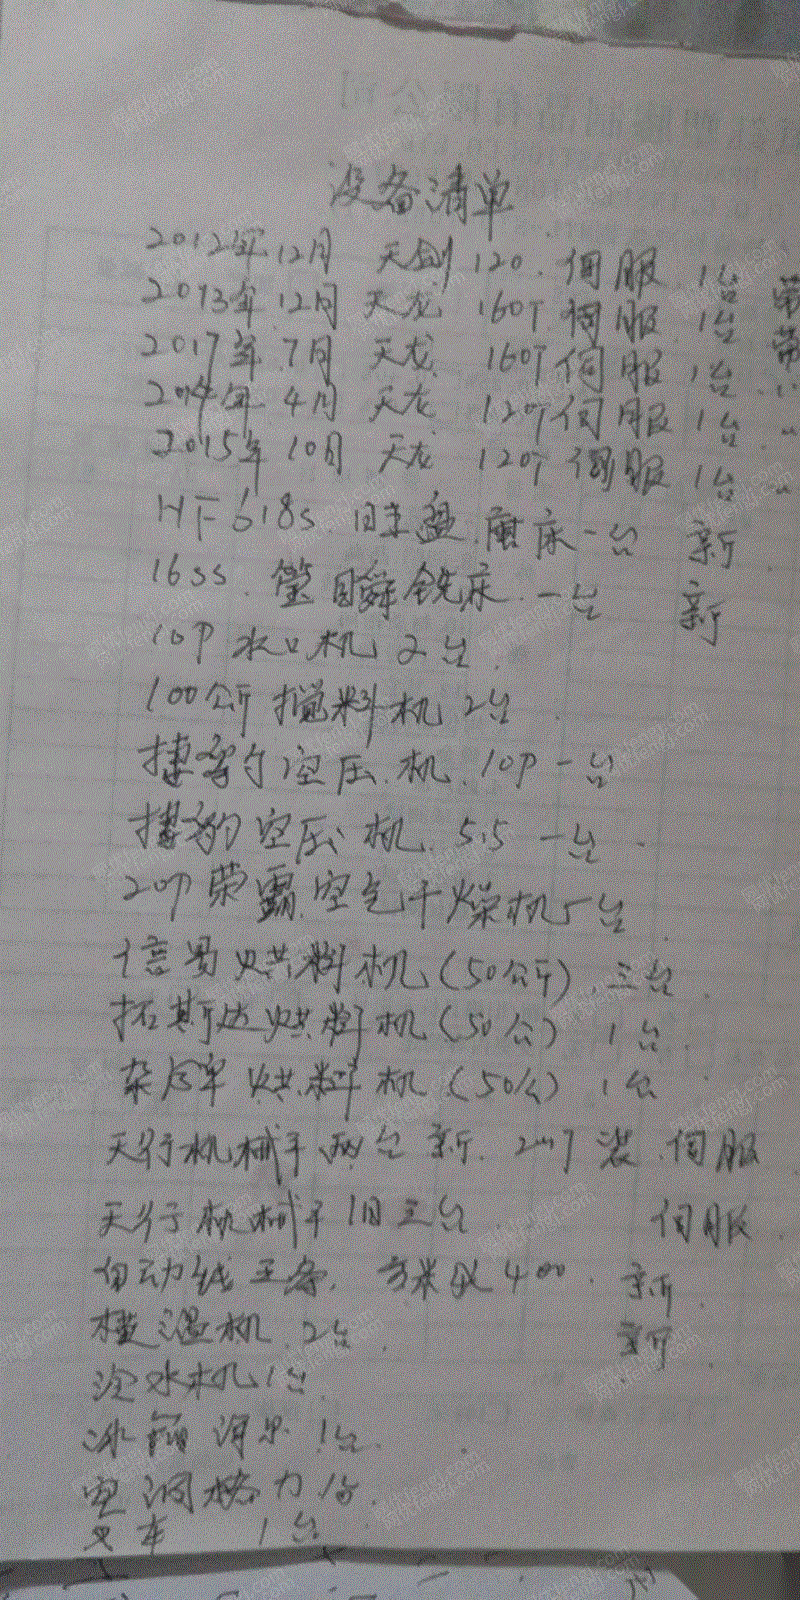 设备清单
2012年12月 天剑120.伺服.1台 带
2013年12月 天龙 160T伺服.1台 带
2017年7月 天龙 160T伺服 1台 〃
2014年4月 天龙 120T伺服 1台 〃
2015年10月 天龙 120T伺服 1台 〃
HF618s 磨床一台 新
16ss. 铣床.一台 新
10P水口机2台.
100公斤搅料机2台.
空压机.10P一台
捷豹空压机.5.5一台.
20P荣霸空气干燥机1台.
信易烘料机(50公斤)三台.
拓斯达烘料机(50公)1台.
杂牌烘料机(50公)1台
天行机械手两台新.2017装.伺服
天行机械手旧三台. 伺服.
自动线三条. 400. 新.
模温机.2台. 新.
冷水机1台.
冰箱海尔1台.
空调格力1台.
叉车 1台